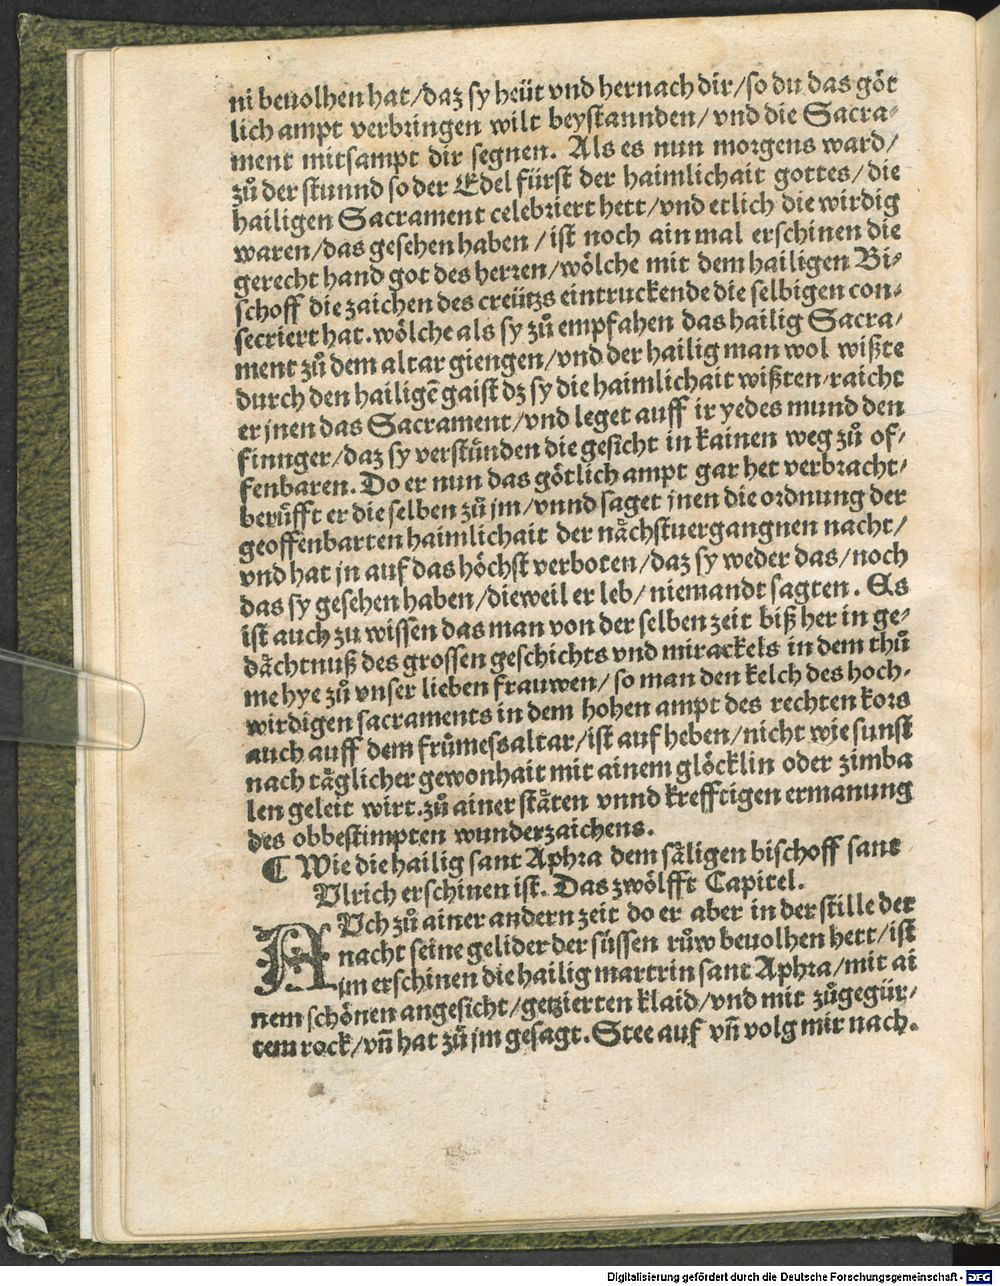 ni beuolhen hat/daz sy heüt vnd hernach dir/so du das göt
lich ampt verbringen wilt beystannden/ vnd die Sacra⸗
ment mitsampt dir segnen. Als es nun morgens ward/
zů der stunnd so der Edel fürst der haimlichait gottes/ die
hailigen Sacrament celebriert hett/vnd etlich die wirdig
waren/das gesehen haben/ist noch ain mal erschinen die
gerecht hand got des herren/wölche mit dem hailigen Bi⸗
schoff die zaichen des creützs eintruckende die selbigen con⸗
secriert hat.wölche als sy zů empfahen das hailig Sacra/
ment zů dem altar giengen/vnd der hailig man wol wißte
durch den hailigē gaist dz sy die haimlichait wißten/raicht
er jnen das Sacrament/vnd leget auff ir yedes mund den
finnger/daz sy verstünden die gesicht in kainen weg zů of⸗
fenbaren. Do er nun das götlich ampt gar het verbracht/
berůfft er die selben zů jm/vnnd saget jnen die ordnung der
geoffenbarten haimlichait der nächstuergangnen nacht/
vnd hat jn auf das höchst verboten/daz sy weder das/noch
das sy gesehen haben/dieweil er leb/ niemandt sagten. Es
ist auch zu wissen das man von der selben zeit biß her in ge⸗
dächtnuß des grossen geschichts vnd mirackels in dem thů
me hye zů vnser lieben frauwen/ so man den kelch des hoch⸗
wirdigen sacraments in dem hohen ampt des rechten kors
auch auff dem frůmessaltar/ist auf heben/nicht wie sunst
nach täglicher gewonhait mit ainem glöcklin oder zimba
len geleit wirt.zů ainer stäten vnnd krefftigen ermanung
des obbestimpten wunderzaichens.
¶ Wie die hailig sant Aphra dem säligen bischoff sant
Vlrich erschinen ist. Das zwölfft Capitel.
AVch zů ainer andern zeit do er aber in der stille der
nacht seine gelider der süssen růw beuolhen hett/ist
jm erschinen die hailig martrin sant Aphra/mit ai
nem schönen angesicht/getzierten klaid/vnd mit zůgegür⸗
tem rock/vñ hat zů jm gesagt. Stee auf vñ volg mir nach.
Digitalisierung gefördert durch die Deutsche Forschungsgemeinschaft - DFG